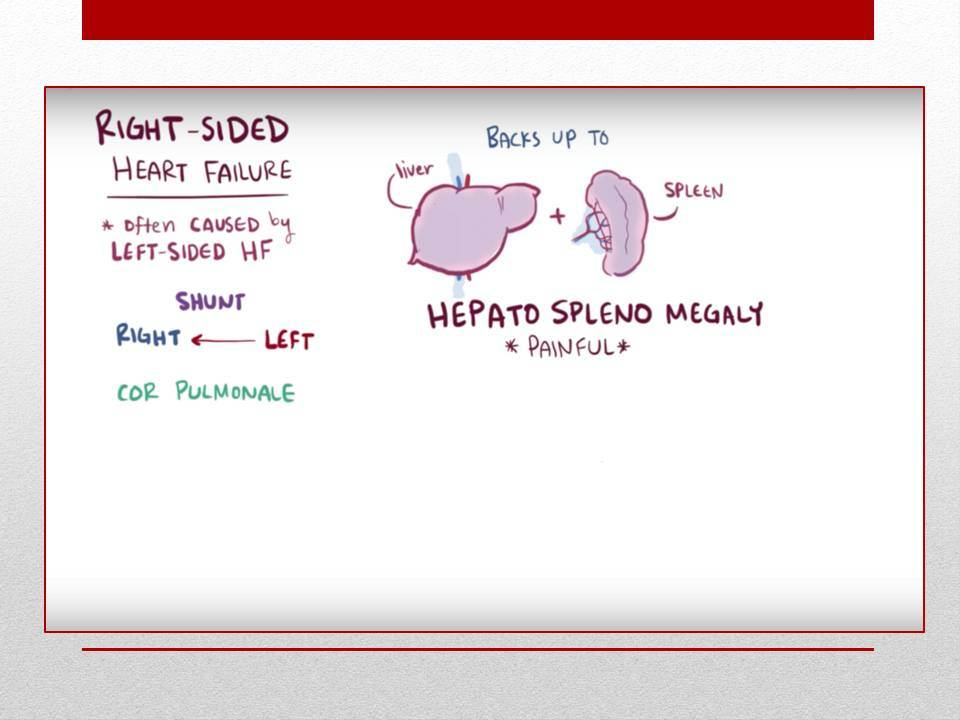 RIGHT-SIDED
HEART FAILURE
* Often CAUSED by
LEFT-SIDED HF
SHUNT
RIGHT ← LEFT
COR PULMONALE
BACKS UP TO
liver
+
SPLEEN
HEPATO SPLENO MEGALY
* PAINFUL *